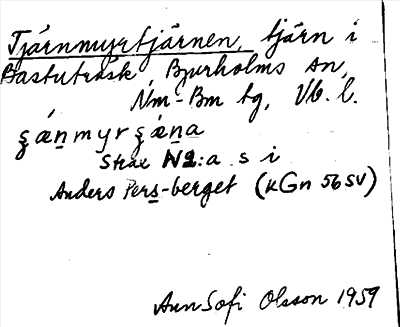 Tjärnmyrtjärnen, tjärn i
Bastuträsk, Bjurholms sn,
Nm-Bm tg, Vb. l.
ʂǽn̲myrʂæn̲a
Strax N2:a s i
Anders Pers-berget (KGn 56 SV)
AnnSofi Olsson 1959